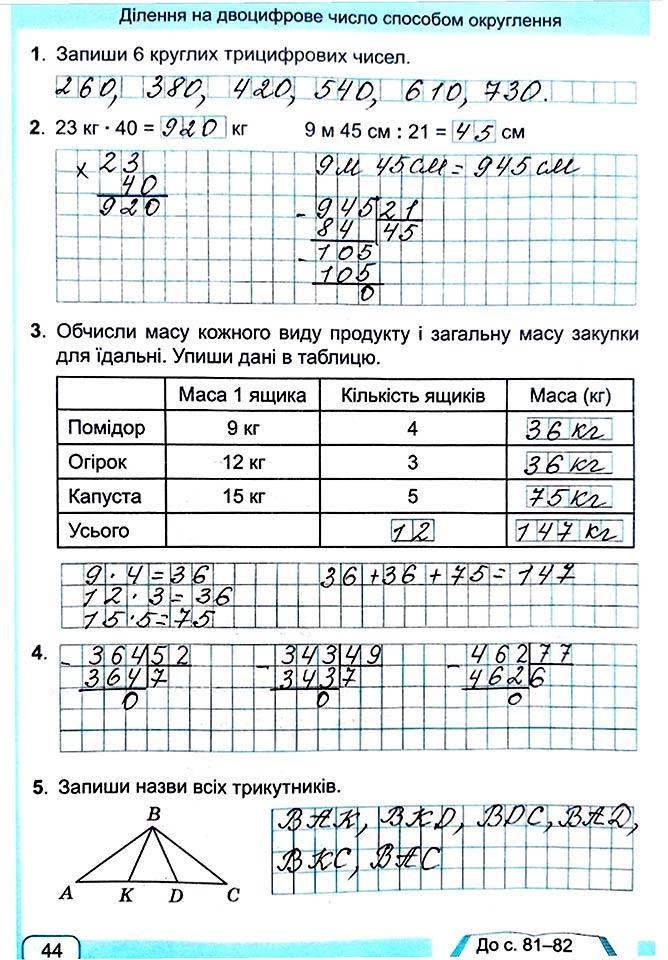 Ділення на двоцифрове число способом округлення
1. Запиши 6 круглих трицифрових чисел.
260, 380, 420, 540, 610, 730.
2. 23 кг · 40 = 920 кг 9 м 45 см : 21 = 45 см
× 23 9 м 45 см = 945 см
40
920 - 945 21
84 45
- 105
105
0
3. Обчисли масу кожного виду продукту і загальну масу закупки
для їдальні. Упиши дані в таблицю.
Маса 1 ящика Кількість ящиків Маса (кг)
Помідор 9 кг 4 36 кг
Огірок 12 кг 3 36 кг
Капуста 15 кг 5 75 кг
Усього 12 147 кг
9 · 4 = 36 36 + 36 + 75 = 147
12 · 3 = 36
15 · 5 = 75
4. - 364 52 - 343 49 - 462 77
364 7 343 7 462 6
0 0 0
5. Запиши назви всіх трикутників.
B
BAK, BKD, BDC, BAD,
BKC, BAC
A K D C
44
До с. 81–82